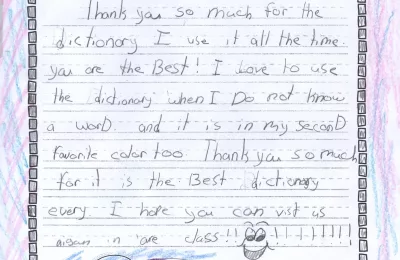 Thank you so much for the
dictionary I use it all the time
you are the Best! I Love to use
the dictionary when I Do not know
a worD. and it is in my seconD
favorite color too. Thank you so much
for it is the Best dictionary
every. I hope you can vist us
agean in are class!!!!!!!!!!!